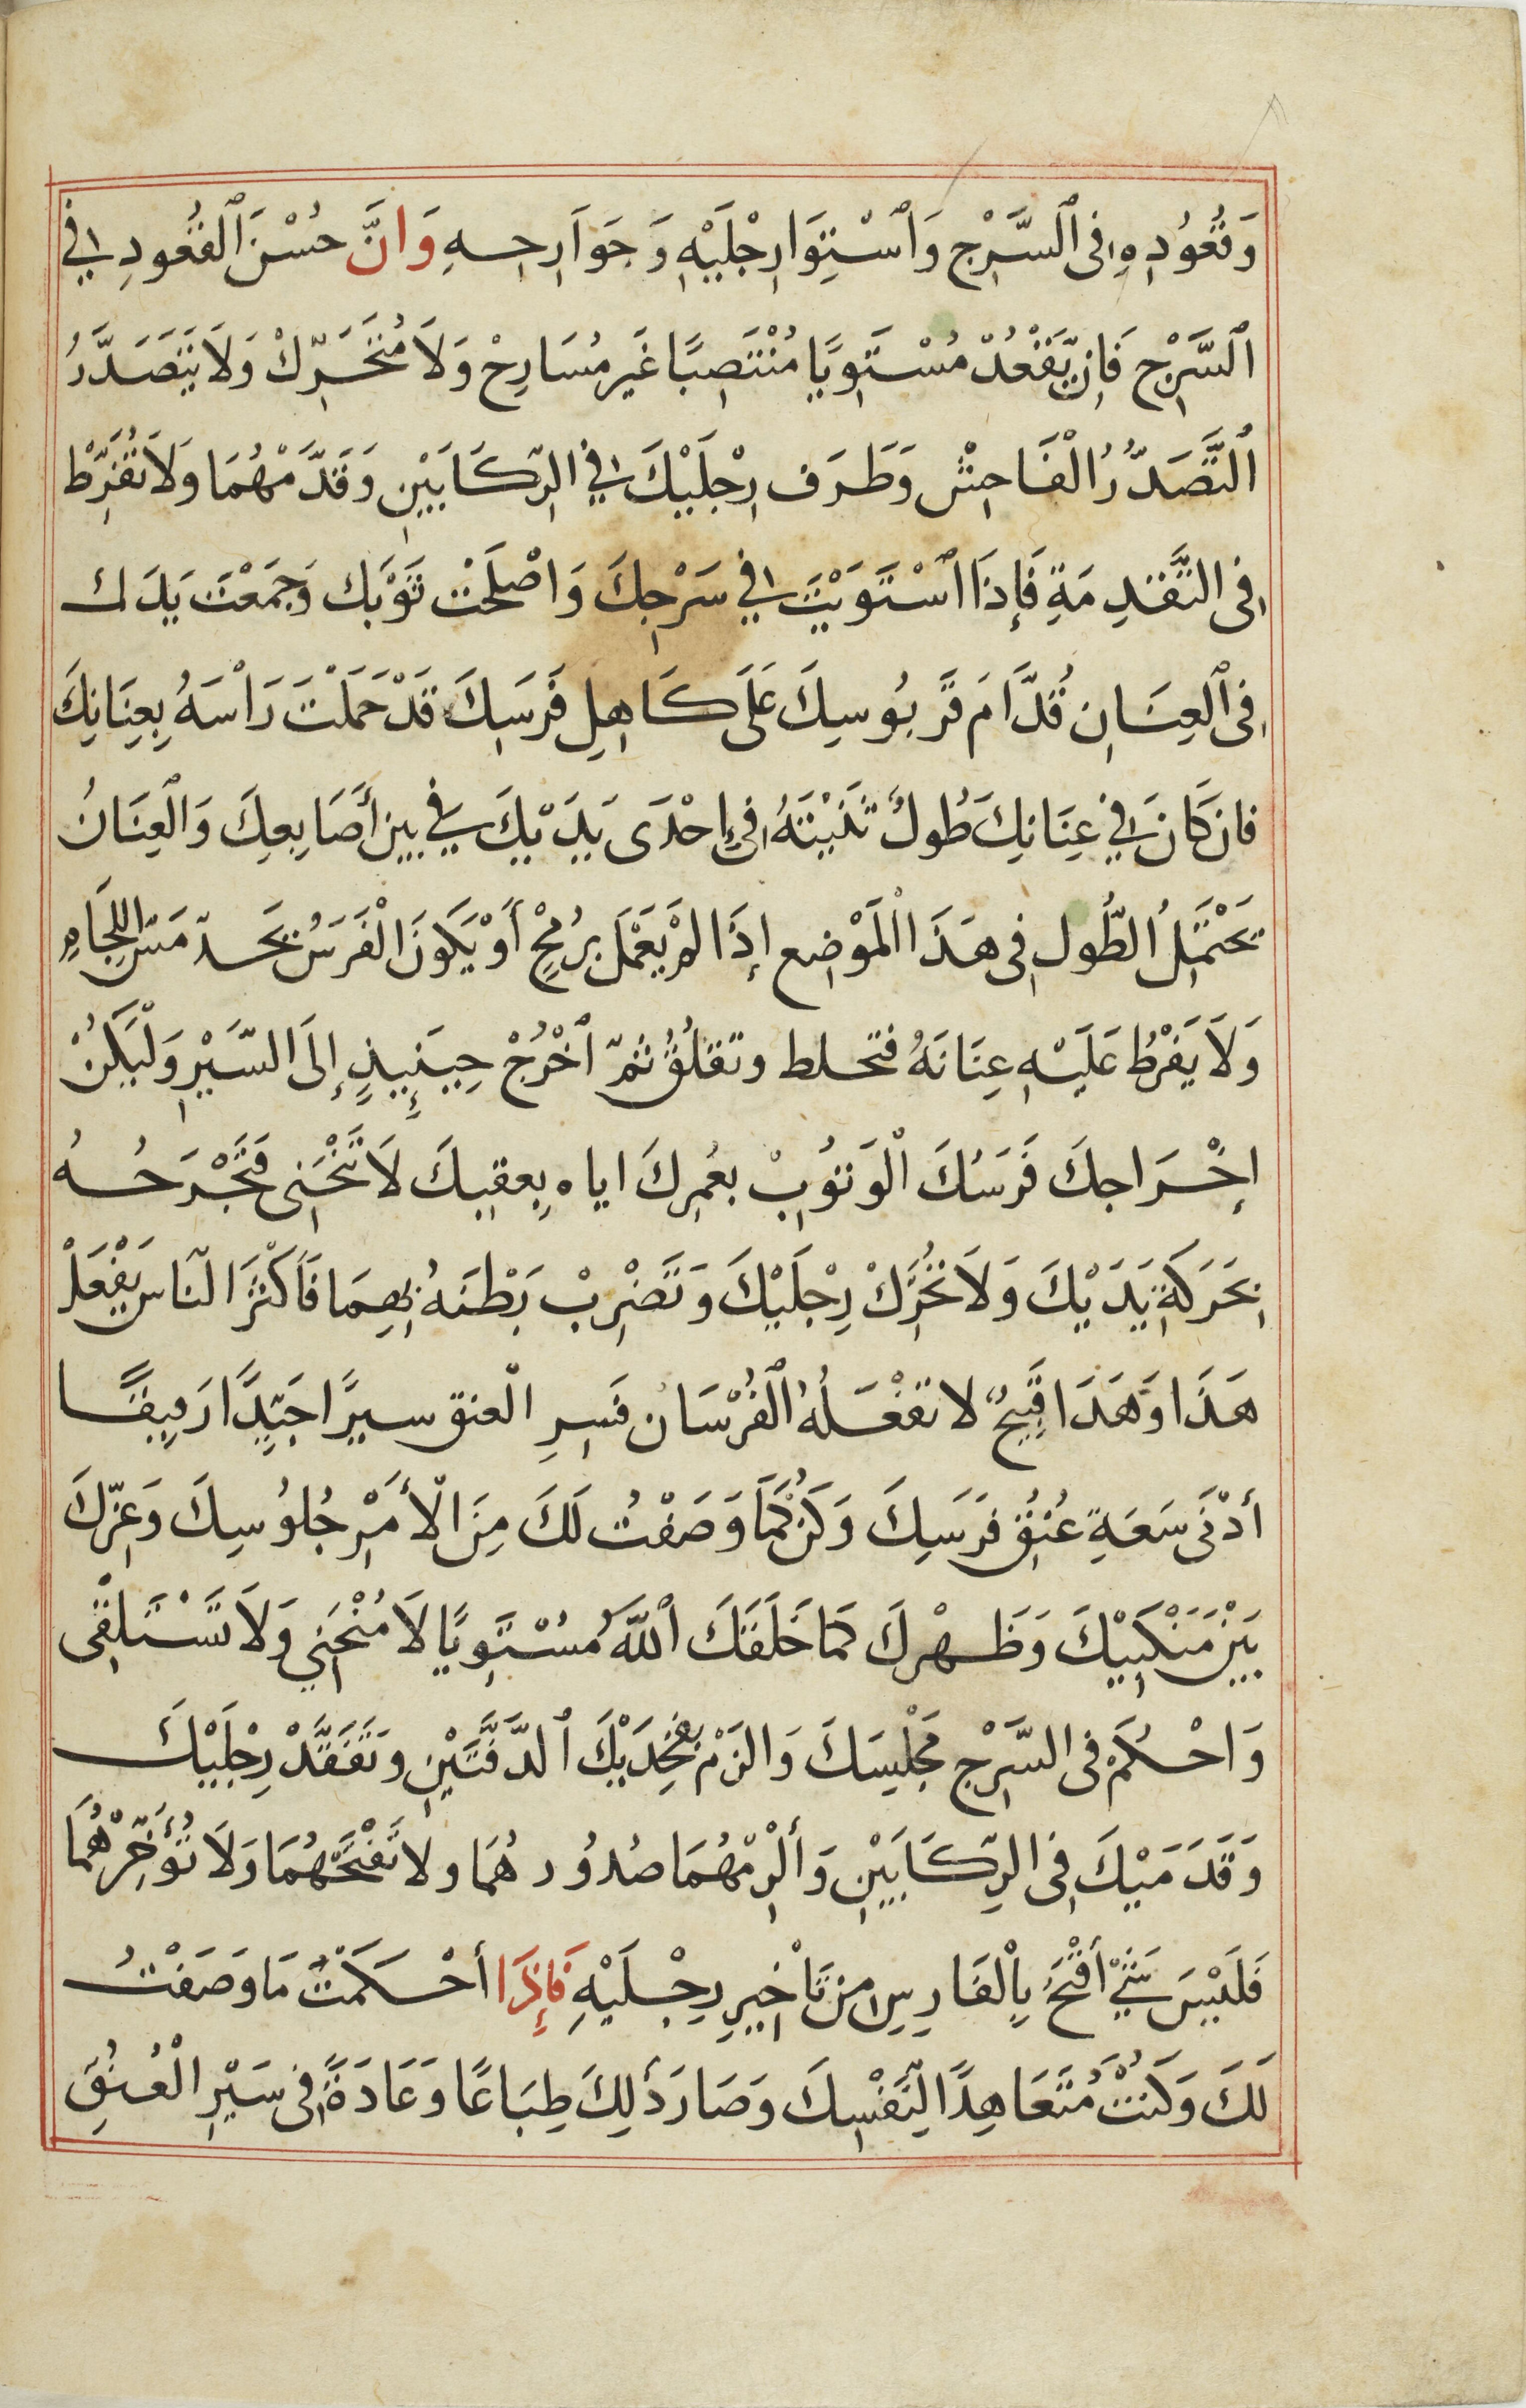 وَقُعُودِهِ فِى ٱلسَّرْجِ وَٱسْتِوَا رِجْلَيْهِ وَجَوَارِحِهِ وَانَّ حُسْنَ ٱلقُعُودِ فِي
ٱلسَّرْجِ فَإِن يَّقْعُدْ مُسْتَوِيًا مُنْتَصِبًا غَيرَ مُسَارِحْ وَلَا مُتَحَرِّكْ وَلَا يَتَصَدَّرُ
ٱلتَّصَدُّرُ الْفَاحِشْ وَطَرَف رِجْلَيْكَ فِي الرِّكَابَيْنِ وَقَدَّمْهُمَا وَلَا تُفَرِّطْ
فِى التَّقْدِمَةِ فَإِذَا ٱسْتَوَيْتَ فِي سَرْجِكَ وَاصْلَحْت ثَوْبَك وَجَمَعْتَ يَدَك
فِى ٱلعِنَانِ قُدَّامَ قَرَبُوسِكَ عَلَى كَاهِلِ فَرَسِكَ قَدْ حَمَلْتَ رَاْسَهُ بِعِنَانِكَ
فان كَانَ فِي عِنَانِكَ طُولٌ ثَنَيْتَهُ فِي إِحْدَى يَدَيْكَ فِي بين أَصَابِعِكَ وَٱلْعِنَانُ
يَحْتَمِلُ ٱلطُّولَ فِى هَذَا الْمَوْضِع إِذَا لَمْ يَعْمَل بِرُمْحٍ أَوْ يَكُونَ الْفَرَسُ يَجِد مَسّ اللِّجَامِ
وَلَا يَفْرطُ عَلَيْهِ عِنَانَهُ فتحلط وتقلُقُ ثمّ ٱخْرُجْ حِينَئِيذٍ إِلَى السَّيْرِ وَلْيَكُنْ
إِخْرَاجكَ فَرَسُكَ الْوَثوُبْ بغمِركَ اياه بِعقِبِكَ لَا تَنْحَنِى فَتَجْرَحُهُ
بِحَرَكَةِ يَدَيْكَ وَلَا تُحَرِّكْ رِجْلَيْكَ وَتَضْرِبْ بَطْنَهُ بِهِمَا فَأَكْثَرَ النَّاس يَفْعَلْ
هَذَا وَهَذَا قَبِيحٌ لا تفْعَلُهُ ٱلْفُرْسَان فَسِرِ الْعنق سيرًا جَيِّدًا رَفِيقًا
أَدْنَى سَعَةِ عُنُقِ فَرَسِكَ وَكُنْ كَمَا وَصَفْتُ لَكَ مِنَ الْأَمْرِ جُلُوُسِكَ وَغِرِّكَ
بَيْنَ مَنْكِبَيْكَ وَظَهْركَ كَمَا خَلَقَكَ ٱللَّهُ مُسْتَوِيًا لَا مُنْحَنِي وَلَا تَسْتَلْقِى
وَاحْكُمْ فِى السَّرْجِ مَجْلِسَكَ وَالزَمْ بِفَخِذَيْكَ ٱلدَّفَّتَيْنِ وَتَفَقَّدْ رِجْلَيْكَ
وَقَدَمَيْكَ فِى الرِّكَابَيْنِ وَأَلْزِمْهُمَا صُدُورهُمَا ولا تَفْتَحْهُمَا وَلَا تُؤَخِّرْهُمَا
فَلَيْسَ شَيْءٌ أَقْبَحُ بِالْفَارِسِ مِنْ تَأْخِيرِ رِجْلَيْهِ فَإِذَا أَحْكَمْتَ مَا وَصَفْتُ
لَكَ وَكُنْتُ مُتَعَاهِدًا لِنَفْسِكَ وَصَارَ ذَلِكَ طِبَاعًا وَعَادَةً فِى سَيْرِ الْعُنُقِ